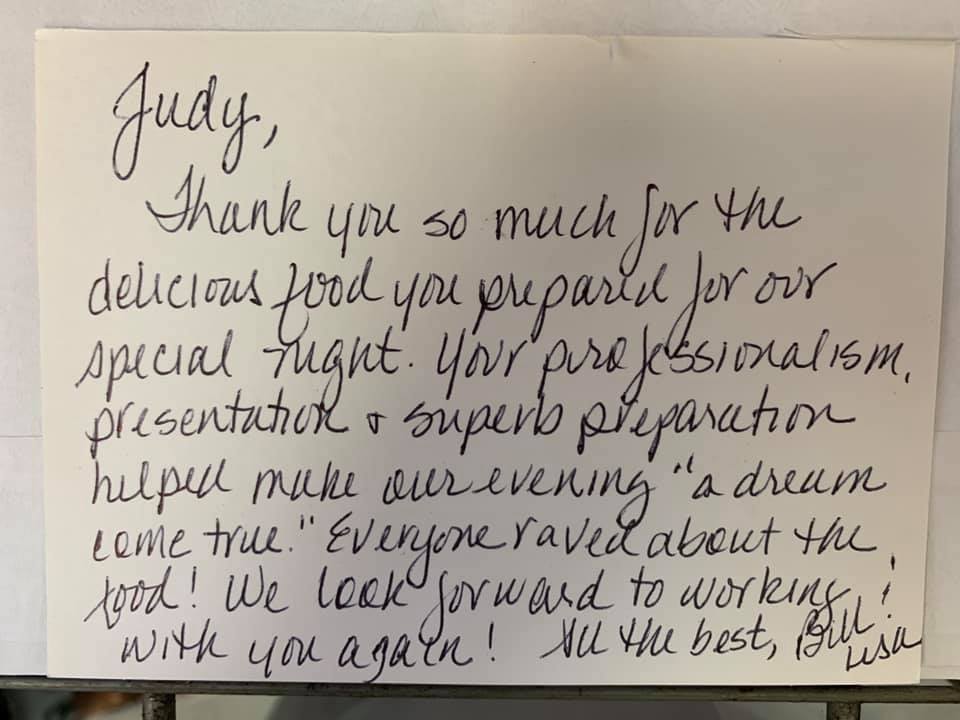 Judy,
Thank you so much for the
delicious food you prepared for our
special night. Your professionalism,
presentation & superb preparation
helped make our evening "a dream
come true." Everyone raved about the
food! We look forward to working
with you again! All the best, Bill &
Lisa